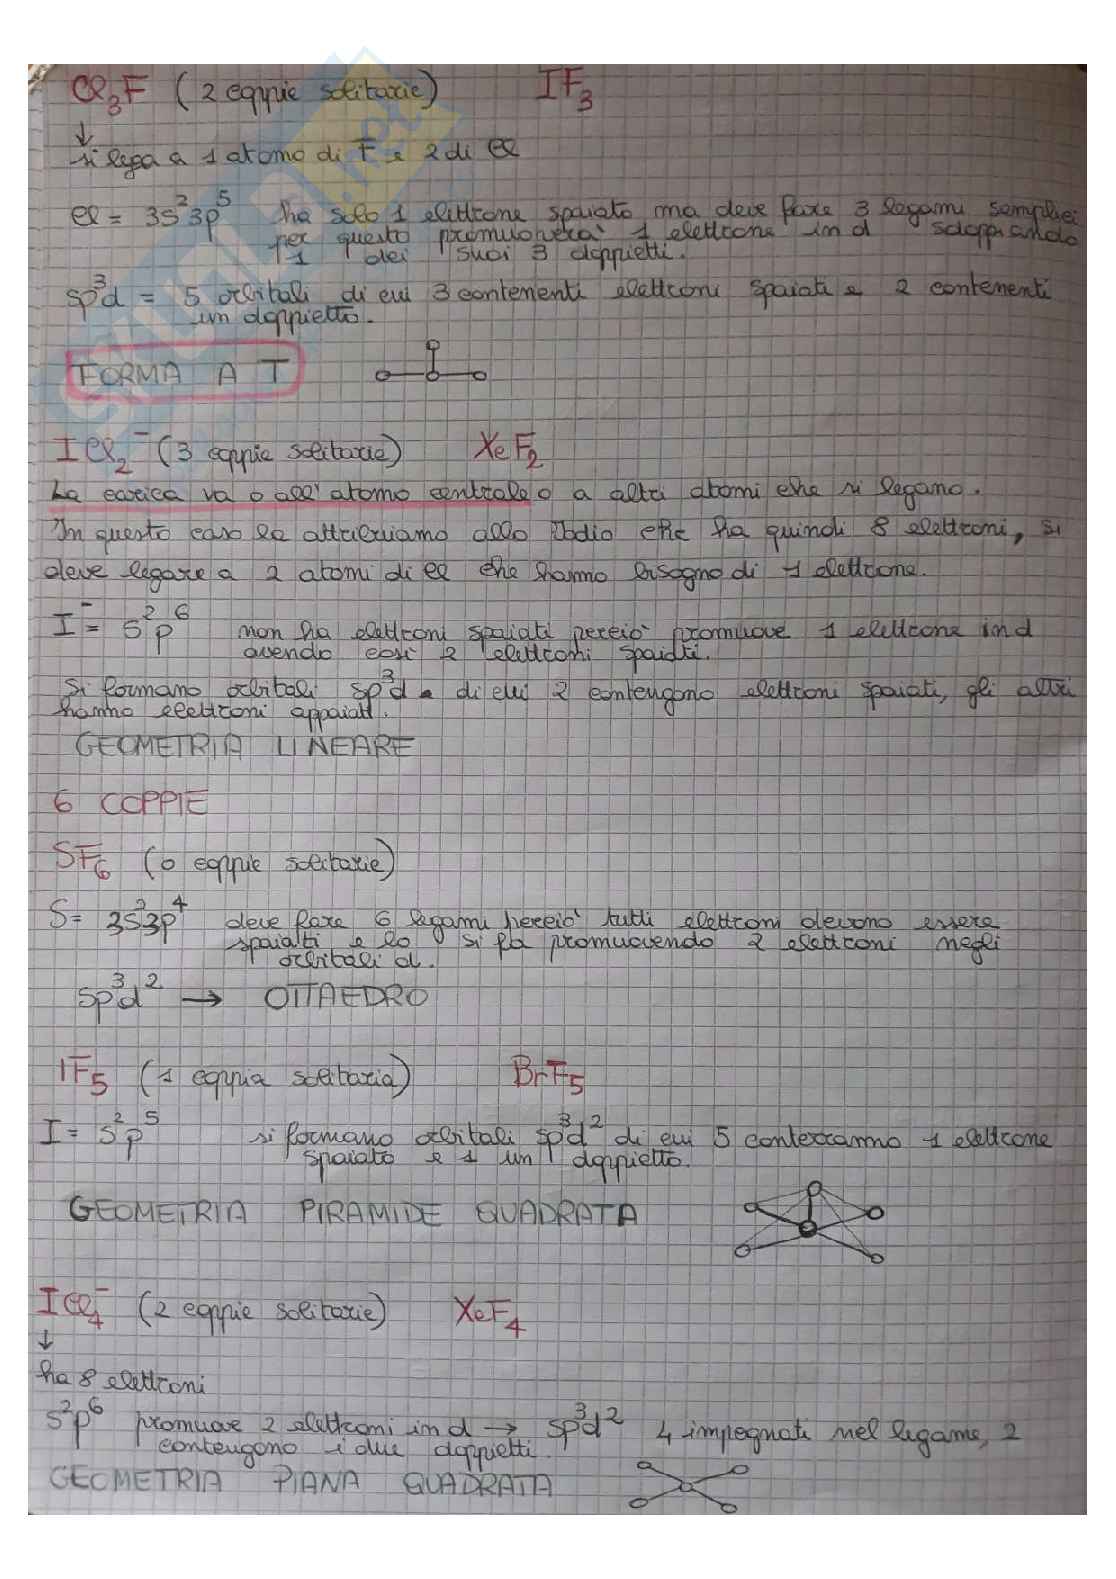 Cl₃F (2 coppie solitarie) IF₃
↓
si lega a 1 atomo di F e 2 di Cl
Cl = 3s² 3p⁵ ha solo 1 elettrone spaiato ma deve fare 3 legami semplici
per questo promuoverà 1 elettrone in d sdoppiando
1 dei suoi 3 doppietti.
sp³d = 5 orbitali di cui 3 contenenti elettroni spaiati e 2 contenenti
un doppietto.
FORMA A T
ICl₂⁻ (3 coppie solitarie) XeF₂
La carica va o all'atomo centrale o a altri atomi che si legano.
In questo caso la attribuiamo allo Iodio che ha quindi 8 elettroni, si
deve legare a 2 atomi di Cl che hanno bisogno di 1 elettrone.
I⁻ = s² p⁶ non ha elettroni spaiati perciò promuove 1 elettrone in d
avendo così 2 elettroni spaiati.
Si formano orbitali sp³d di cui 2 contengono elettroni spaiati, gli altri
hanno elettroni appaiati.
GEOMETRIA LINEARE
6 COPPIE
SF₆ (0 coppie solitarie)
S = 3s² 3p⁴ deve fare 6 legami perciò tutti elettroni devono essere
spaiati e lo si fa promuovendo 2 elettroni negli
orbitali d.
sp³d² → OTTAEDRO
IF₅ (1 coppia solitaria) BrF₅
I = s² p⁵ si formano orbitali sp³d² di cui 5 conterranno 1 elettrone
spaiato e 1 un doppietto.
GEOMETRIA PIRAMIDE QUADRATA
ICl₄⁻ (2 coppie solitarie) XeF₄
↓
ha 8 elettroni
s² p⁶ promuove 2 elettroni in d → sp³d² 4 impegnati nel legame, 2
contengono i due doppietti.
GEOMETRIA PIANA QUADRATA